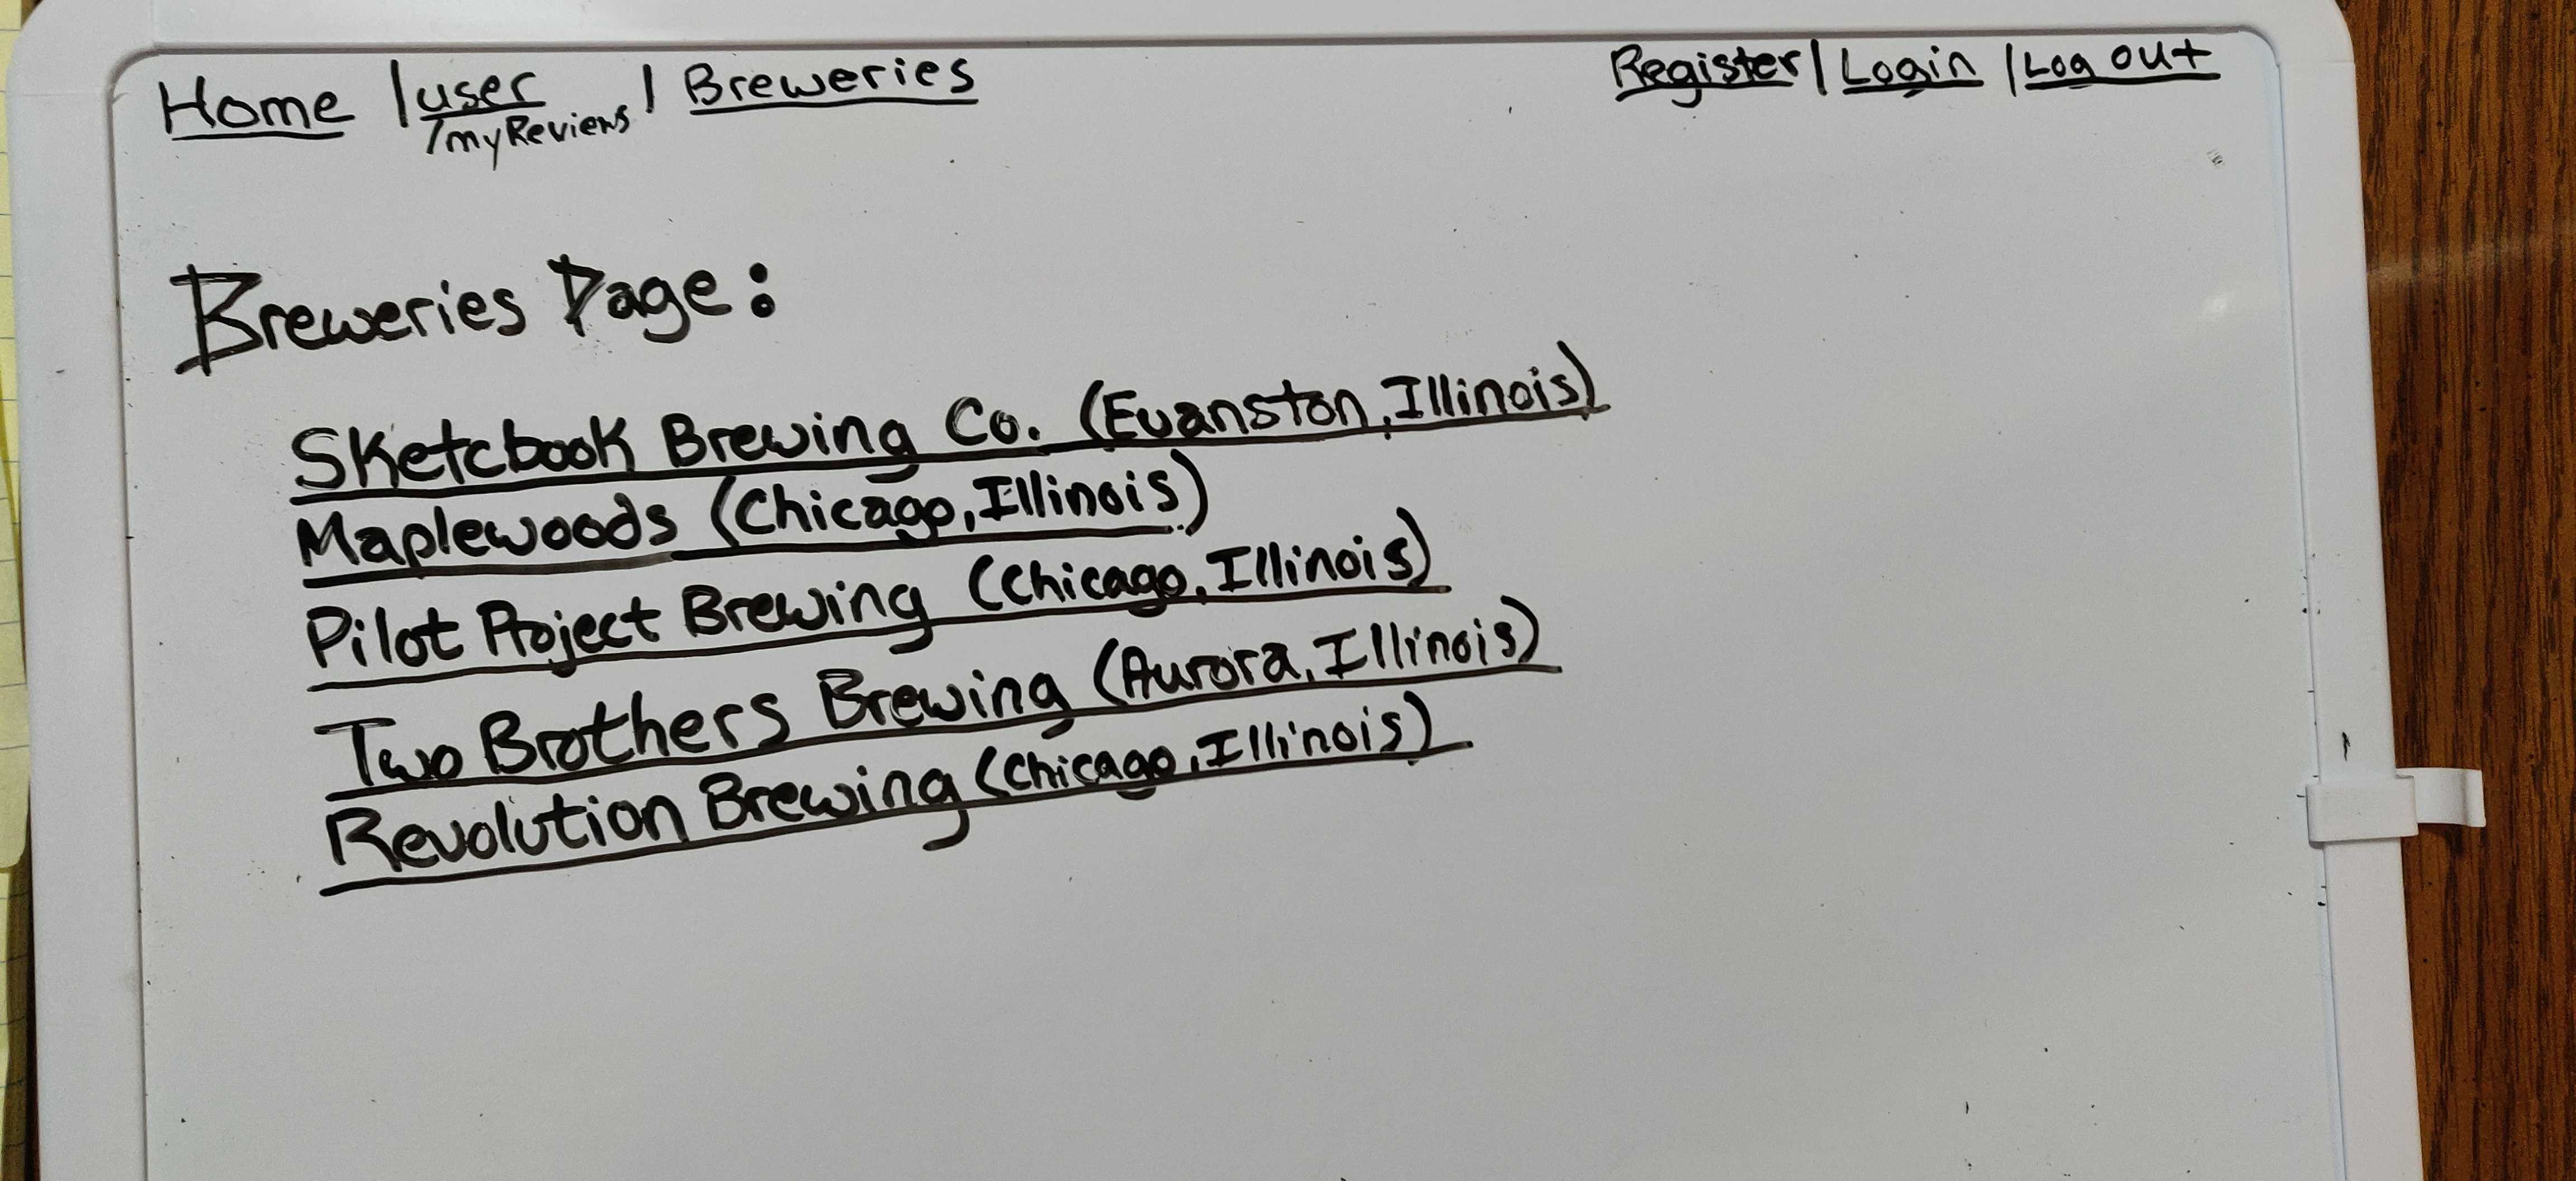 Home | user | Breweries
/myReviews
Register | Login | Log out
Breweries Page:
Sketcbook Brewing Co. (Evanston, Illinois)
Maplewoods (Chicago, Illinois)
Pilot Project Brewing (Chicago, Illinois)
Two Brothers Brewing (Aurora, Illinois)
Revolution Brewing (Chicago, Illinois)